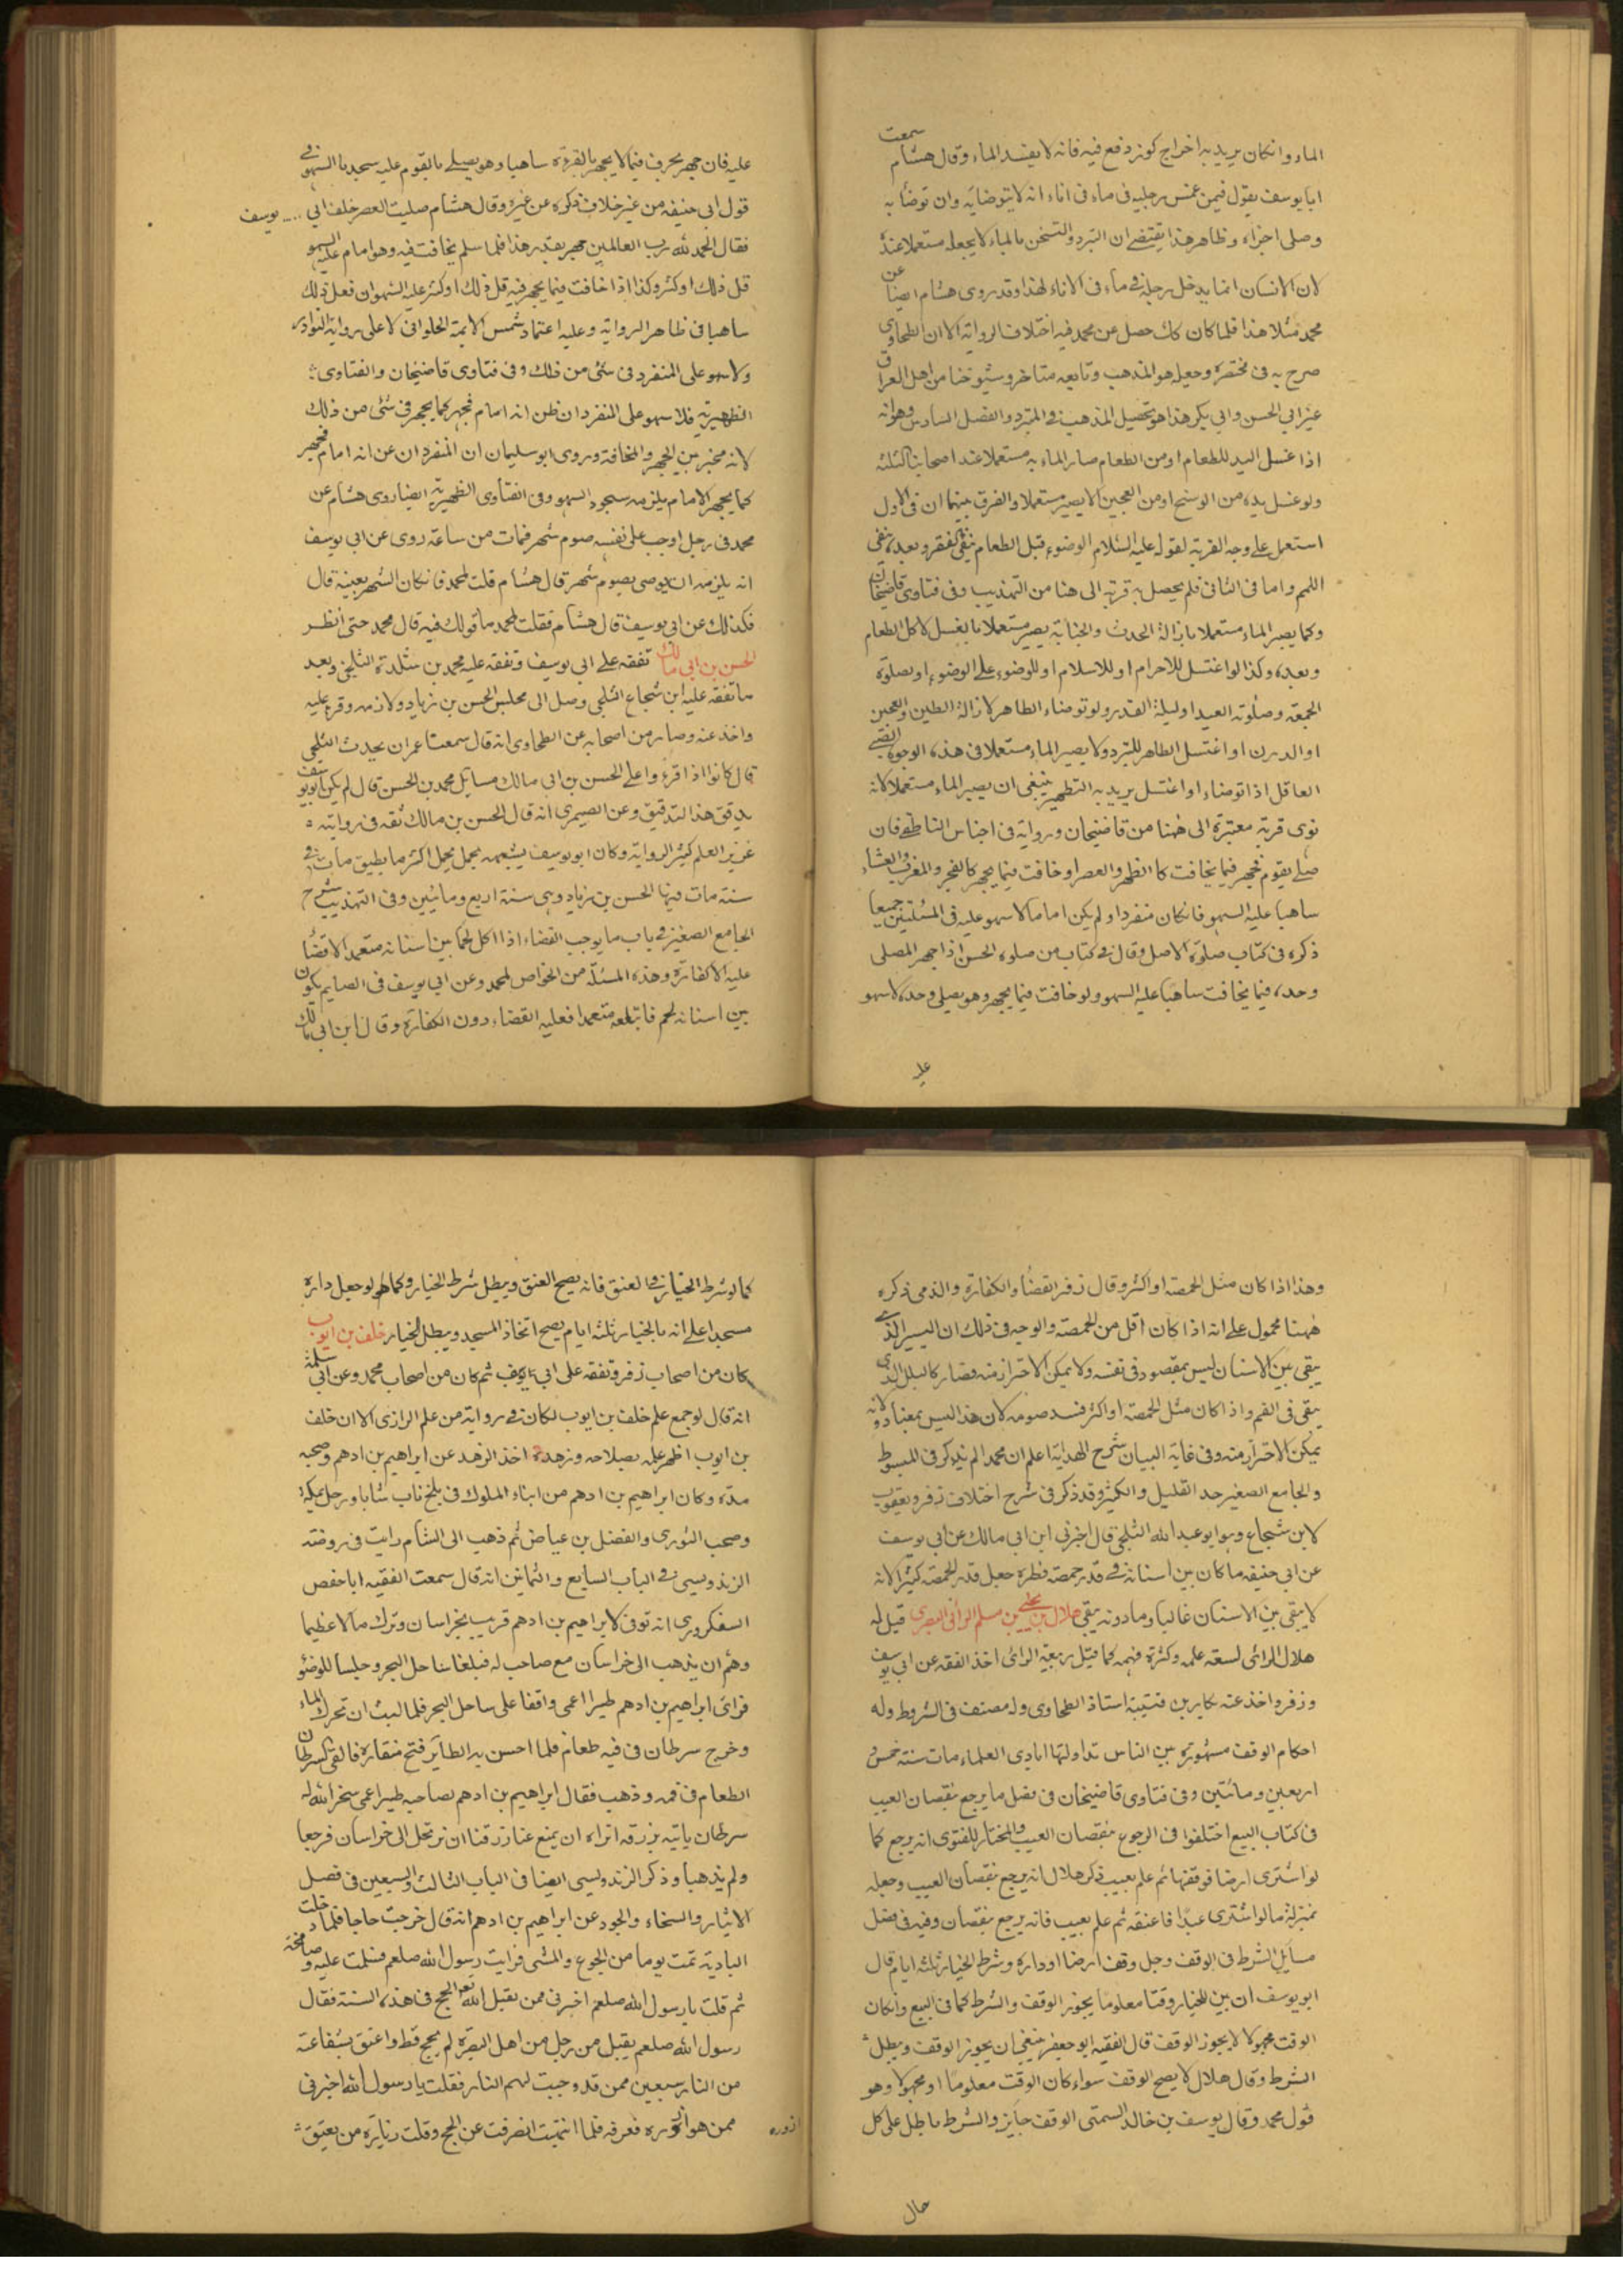 الماء وان كان يريد به اخراج كوز وقع فيه فانه لا يفسد الماء وقال هشام سمعت
ابا يوسف يقول فيمن غمس رجليه فى ماء فى اناء انه لا يتوضا به وان توضأ به
وصلى اجزاه وظاهر هذا يقتضى ان التبرد والتسخن بالماء لا يجعله مستعملا عنده
لان الانسان انما يدخل رجله فى ماء فى الاناء لهذا وقد روى هشام ايضا عن
محمد مثلا هذا فلما كان كك حصل عن محمد فيه اختلاف الرواية الا ان الطحاوى
صرح به فى مختصره وجعله هو المذهب وتابعه متاخرو شيوخنا من اهل العراق
غير ابى الحسن وابى بكر هذا هو تحصيل المذهب فى المتبرد والفصل السادس وهو انه
اذا غسل اليد للطعام او من الطعام صار الماء به مستعملا عند اصحابنا الثلثة
ولو غسل يده من الوسخ او من العجين لا يصير مستعملا والفرق بينهما ان فى الاول
استعمل على وجه القربة لقوله عليه السلام الوضوء قبل الطعام ينفى الفقر وبعده ينفى
اللمم واما فى الثانى فلم يحصل به قربة الى هنا من التهذيب وفى فتاوى قاضيخان
وكما يصير الماء مستعملا بازالة الحدث والجنابة يصير مستعملا بالغسل لاكل الطعام
وبعده وكذا لو اغتسل للاحرام او للاسلام او للوضوء على الوضوء او بصلوة
الجمعة وصلوته العيد او ليلة القدر ولو توضاء الطاهر لازالة الطين والعجين
او الدرن او اغتسل الطاهر للتبرد ولا يصير الماء مستعملا فى هذه الوجوه الصبى
العاقل اذا توضاء او اغتسل يريد به التطهير ينبغى ان يصير الماء مستعملا لانه
نوى قربة معتبرة الى ههنا من قاضيخان ورواية فى اجناس الناطفى فان
صلى بقوم فجهر فيما يخافت كا الظهر والعصر او خافت فيما يجهر كالفجر والمغرب والعشاء
ساهيا عليه السهو فانكان منفردا ولم يكن اماما لا سهو عليه فى المسئلتين جميعا
ذكره فى كتاب صلوة الاصل وقال فى كتاب من صلوة الحسن اذا جهر المصلى
وحده فيما يخافت ساهيا عليه السهو ولو خافت فيما يجهر وهو يصلى وحده لا سهو
عليه
عليه فان جهر بحرف فيما لا يجهر بالقرءة ساهيا وهو يصلى بالقوم عليه سجدتا السهو فى
قول ابى حنيفه من غير خلاف ذكره عن غيره وقال هشام صليت العصر خلف ابى يوسف
فقال الحمد لله رب العالمين جهر بقدر هذا فلما سلم يخافت فيه وهو امام عليه السهو
قل ذلك او كثر وكذا اذا خافت فيما يجهر فيه قل ذلك او كثر عليه السهو ان فعل ذلك
ساهيا فى ظاهر الرواية وعليه اعتماد شمس الايمة الحلوانى لا على رواية النوادر
ولا سهو على المنفرد فى شئ من ذلك وفى فتاوى قاضيخان والفتاوى
الظهيرية فلا سهو على المنفرد ان ظن انه امام فجهر كما يجهر فى شئ من ذلك
لانه مخير بين الجهر والمخافتة وروى ابو سليمان ان المنفرد ان عن انه امام فجهر
كما يجهر الامام يلزمه سجود السهو وفى الفتاوى الظهيرية ايضا روى هشام عن
محمد فى رجل اوجب على نفسه صوم شهر فمات من ساعته روى عن ابى يوسف
انه يلزمه ان يوصى بصوم شهر قال هشام قلت لمحمد فانكان الشهر بعينه قال
فكذلك عن ابى يوسف قال هشام فقلت لمحمد ما قولك فيه قال محمد حتى انظر
الحسن بن ابى مالك تفقه على ابى يوسف وتفقه عليه محمد بن شجاع الثلجى وبعد
ما تفقه عليه ابن شجاع الثلجى وصل الى مجلس الحسن بن زياد ولازمه وقرء عليه
واخذ عنه وصار من اصحابه عن الطحاوى انه قال سمعت ابا عمران يحدث الثلجى
قال كانوا اذا قرءوا على الحسن بن ابى مالك مسايل محمد بن الحسن قال لم يكن ابو يوسف
يدقق هذا التدقيق وعن الصيمرى انه قال الحسن بن مالك ثقه فى روايته
غزير العلم كثير الرواية وكان ابو يوسف يشبهه بجمل يحمل اكثر ما يطيق مات فى
سنة مات فيها الحسن بن زياد وهى سنة اربع ومائتين وفى التهذيب شرح
الجامع الصغير فى باب ما يوجب القضاء اذا اكل لحما بين اسنانه متعمدا لا قضأ
عليه لا كفارة وهذه المسئلة من الخواص لمحمد وعن ابى يوسف فى الصايم يكون
بين اسنانه لحم فابتلعه متعمدا فعليه القضاء دون الكفارة وقال ابن ابى مالك
وهذا اذا كان مثل الحمصة او اكثر وقال زفر القضأ والكفارة والذمى ذكره
ههنا محمول على انه اذا كان اقل من الحمصة والوجه فى ذلك ان اليسير الذى
يبقى بين الاسنان ليس بمقصود فى نفسه ولا يمكن الاحتراز منه فصار كالبلل الذى
يبقى فى الفم واذا كان مثل الحمصة او اكثر فسد صومه لان هذا ليس بمعتاد ولانه
يمكن الاحتراز منه وفى غاية البيان شرح الهداية اعلم ان محمدا لم يذكر فى المبسوط
والجامع الصغير حد القليل والكثير وقد ذكر فى شرح اختلاف زفر ويعقوب
لابن شجاع وهو ابو عبد الله الثلجى قال اخبرنى ابن ابى مالك عن ابى يوسف
عن ابى حنيفه ما كان بين اسنانه فى قدر حمصة فطره جعل قدر الحمصه كثيرا لانه
لا يبقى بين الاسنان غالبا وما دونه يبقى هلال بن يحيى بن مسلم الرائى البصرى قيل له
هلال الرائى لسعة علمه وكثرة فهمه كما قيل ربيعة الرائى اخذ الفقه عن ابى يوسف
وزفر واخذ عنه بكار بن قتيبة استاذ الطحاوى وله مصنف فى الشروط وله
احكام الوقف مشهورة بين الناس تداولتها ايادى العلماء مات سنة خمس و
اربعين ومائتين وفى فتاوى قاضيخان فى فصل ما يرجع بنقصان العيب
فى كتاب البيع اختلفوا فى الرجوع بنقصان العيب والمختار للفتوى انه يرجع كما
لو اشترى ارضا فوقفها ثم علم بعيب ذكر هلال انه يرجع بنقصان العيب وجعله
بمنزلة ما لو اشترى عبدا فاعتقه ثم علم بعيب فانه يرجع بنقصان وفيه فى فصل
مسايل الشرط فى الوقف رجل وقف ارضا او داره وشرط الخيار ثلثة ايام قال
ابو يوسف ان بين للخيار وقتا معلوما يجوز الوقف والشرط كما فى البيع وانكان
الوقت مجهولا لا يجوز الوقف قال الفقيه ابو جعفر ينبغى ان يجوز الوقف ويبطل
الشرط وقال هلال لا يصح الوقف سواء كان الوقت معلوما او مجهولا وهو
قول محمد وقال يوسف بن خالد السمتى الوقف جايز والشرط باطل على كل
حال
كما لو شرط الخيار فى العتق فانه يصح العتق ويبطل شرط الخيار وكما لو جعل داره
مسجدا على انه بالخيار ثلثة ايام يصح اتخاذ المسجد ويبطل الخيار خلف بن ايوب
كان من اصحاب زفر وتفقه على ابى يوسف ثم كان من اصحاب محمد وعن ابى سلمة
انه قال لو جمع علم خلف بن ايوب لكان فى رواية من علم الرازى الا ان خلف
بن ايوب اظهر علمه بصلاحه وزهده اخذ الزهد عن ابراهيم بن ادهم وصحبه
مدة وكان ابراهيم بن ادهم من ابناء الملوك فى بلخ تاب شابا ورحل بمكة
وصحب الثورى والفضل بن عياض ثم ذهب الى الشام رايت فى روضة
الزندويسى فى الباب السابع والثمانين انه قال سمعت الفقيه ابا حفص
السفكرورى انه توفى لابراهيم بن ادهم قريب بخراسان وترك مالا عظيما
وهم ان يذهب الى خراسان مع صاحب له فبلغا ساحل البحر وجلسا للوضؤ
فرأى ابراهيم بن ادهم طيرا اعمى واقفا على ساحل البحر فلما لبث ان تحرك الماء
وخرج سرطان فى فيه طعام فلما احس به الطاير فتح منقاره فالقى السرطان
الطعام فى فمه وذهب فقال ابراهيم بن ادهم لصاحبه طيرا اعمى سخر الله له
سرطان ياتيه برزقه اتراه ان يمنع عنا رزقنا ان نرتحل الى خراسان فرجعا
ولم يذهبا وذكر الزندويسى ايضا فى الباب الثالث والسبعين فى فصل
الايثار والسخاء والجود عن ابراهيم بن ادهم انه قال خرجت حاجا فلما دخلت
البادية نمت يوما من الجوع والمشى فرايت رسول الله صلعم فسلمت عليه وصافحته
ثم قلت يا رسول الله صلعم اخبرنى ممن يقبل الله تع الحج فى هذه السنة فقال
رسول الله صلعم يقبل من رجل من اهل البصرة لم يحج قط واعتق بشفاعته
من النار سبعين ممن قد وجبت لهم النار فقلت يا رسول الله اخبرنى
ممن هو ازوره فعرفه فلما انتبهت انصرفت عن الحج وقلت زيارة من يعتق
ازوره